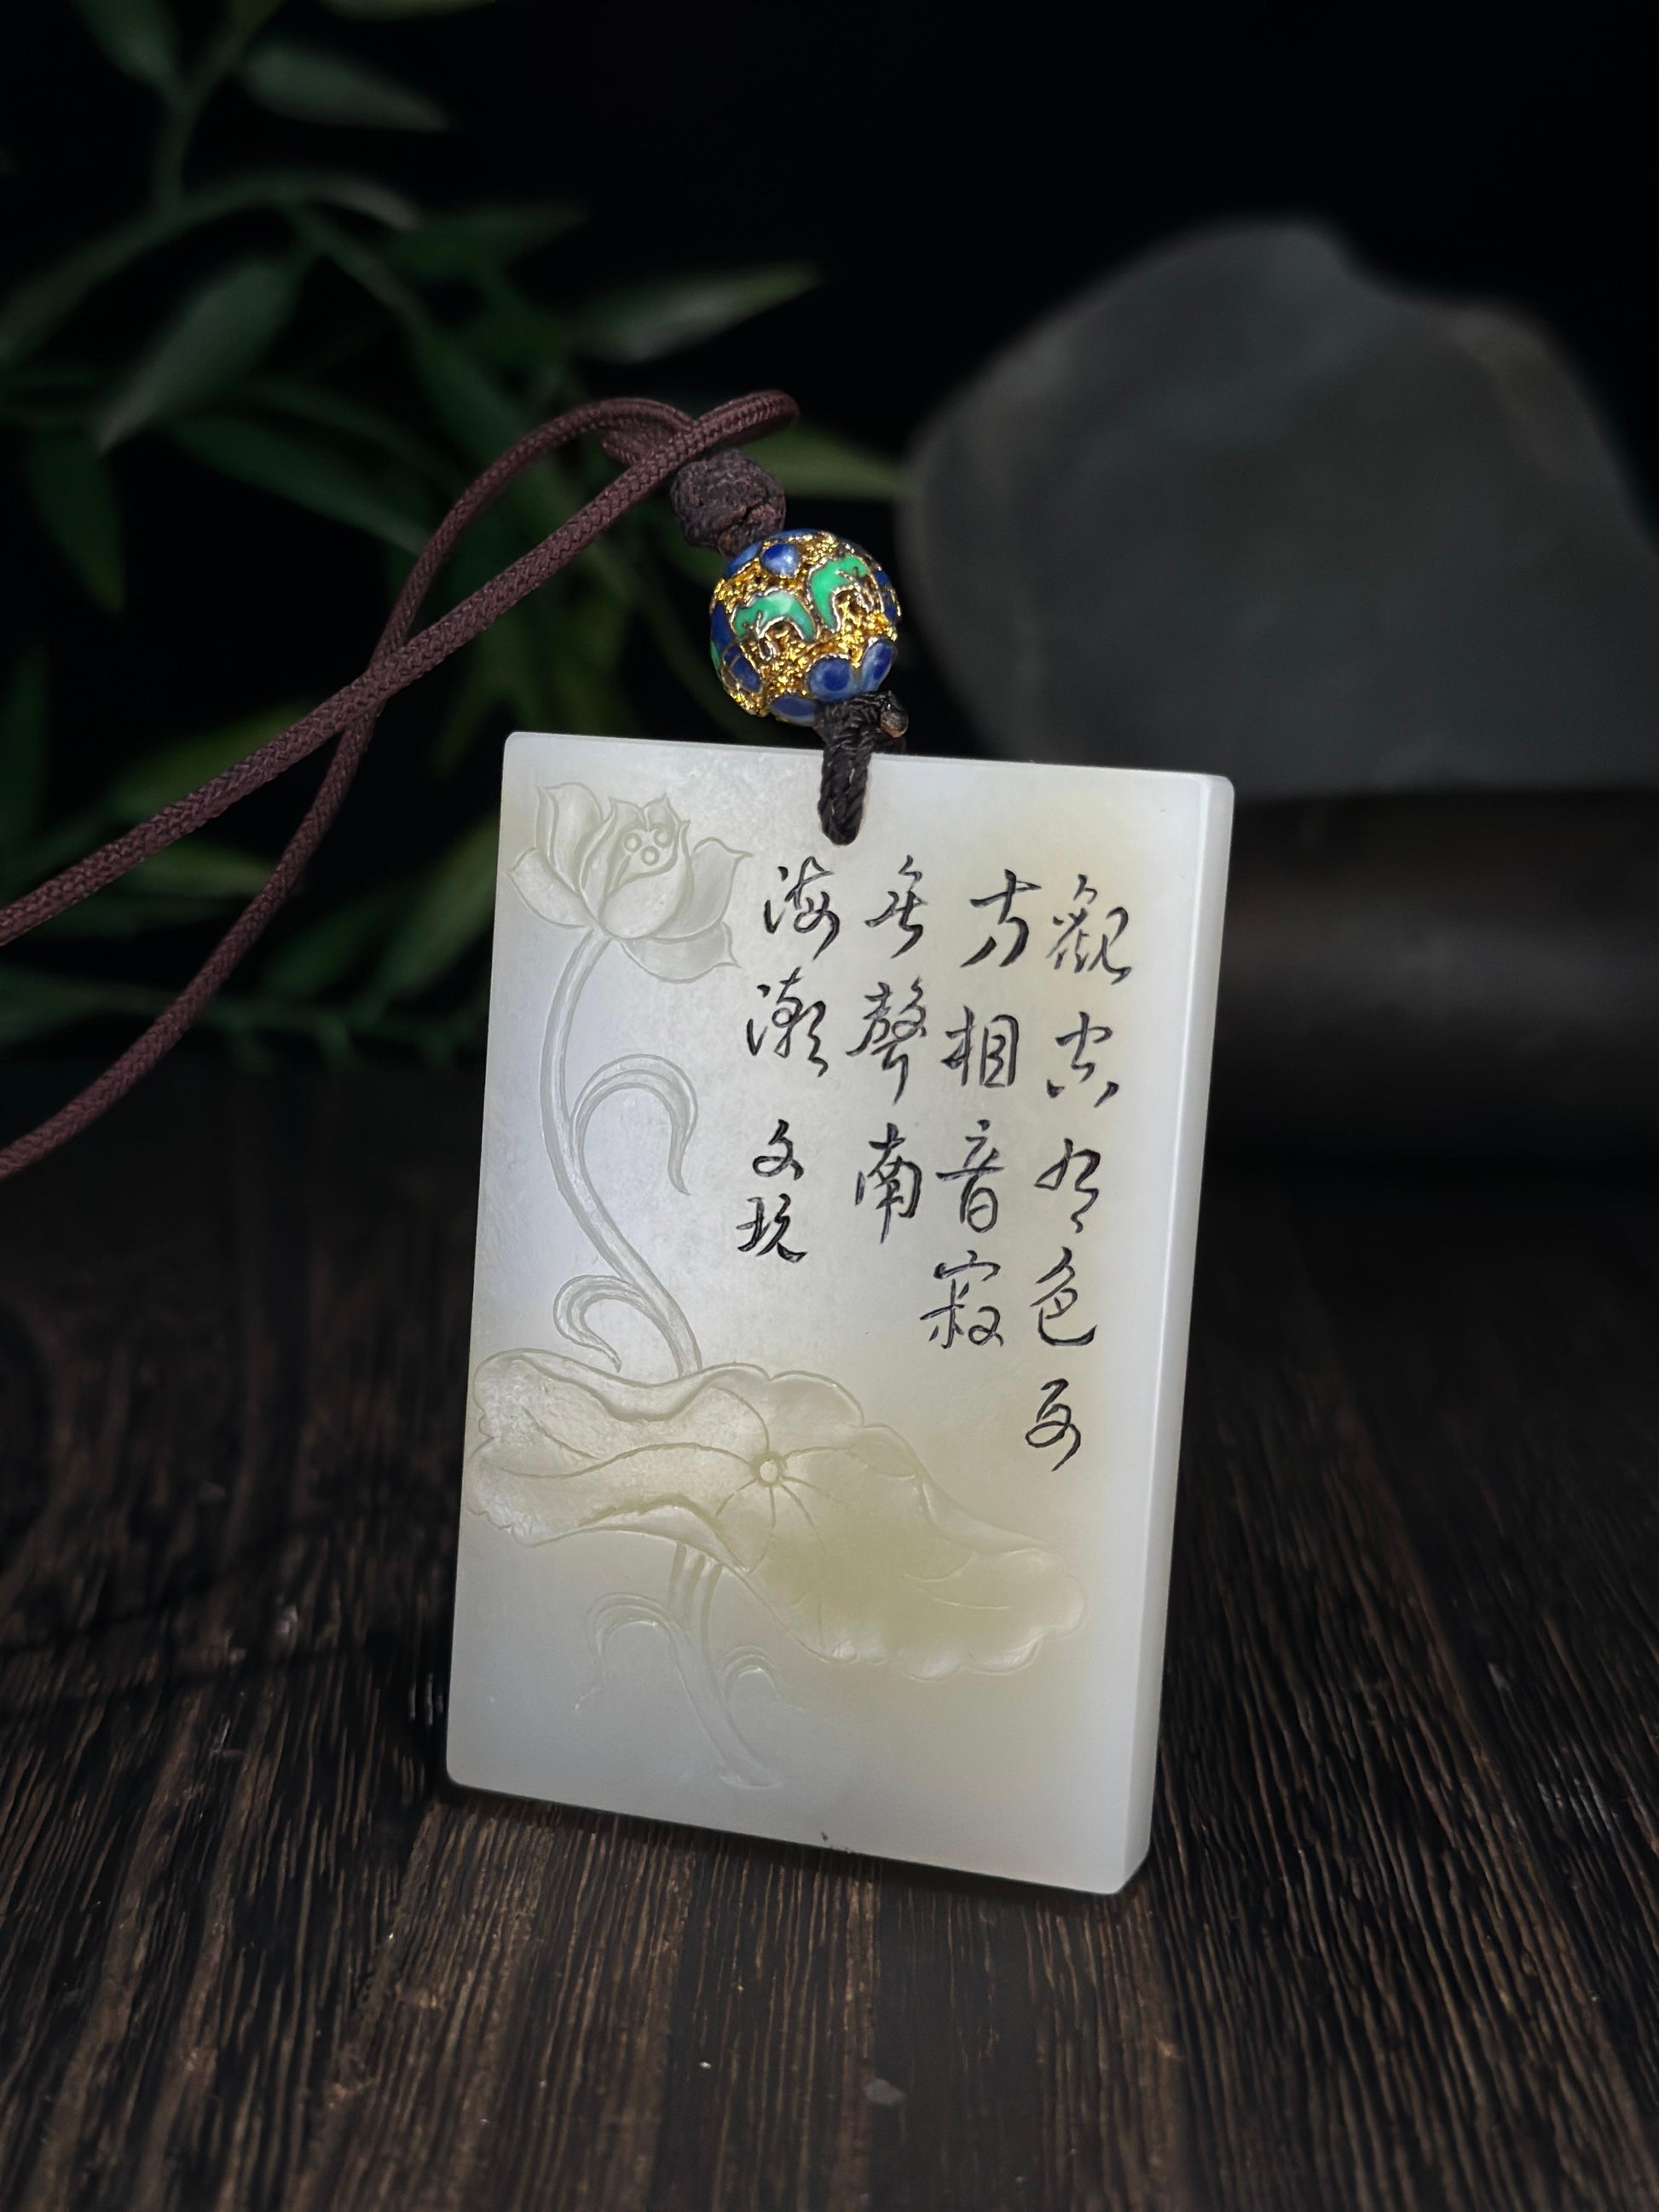 觀空有色西
方相音寂
無聲南
海潮 文玩